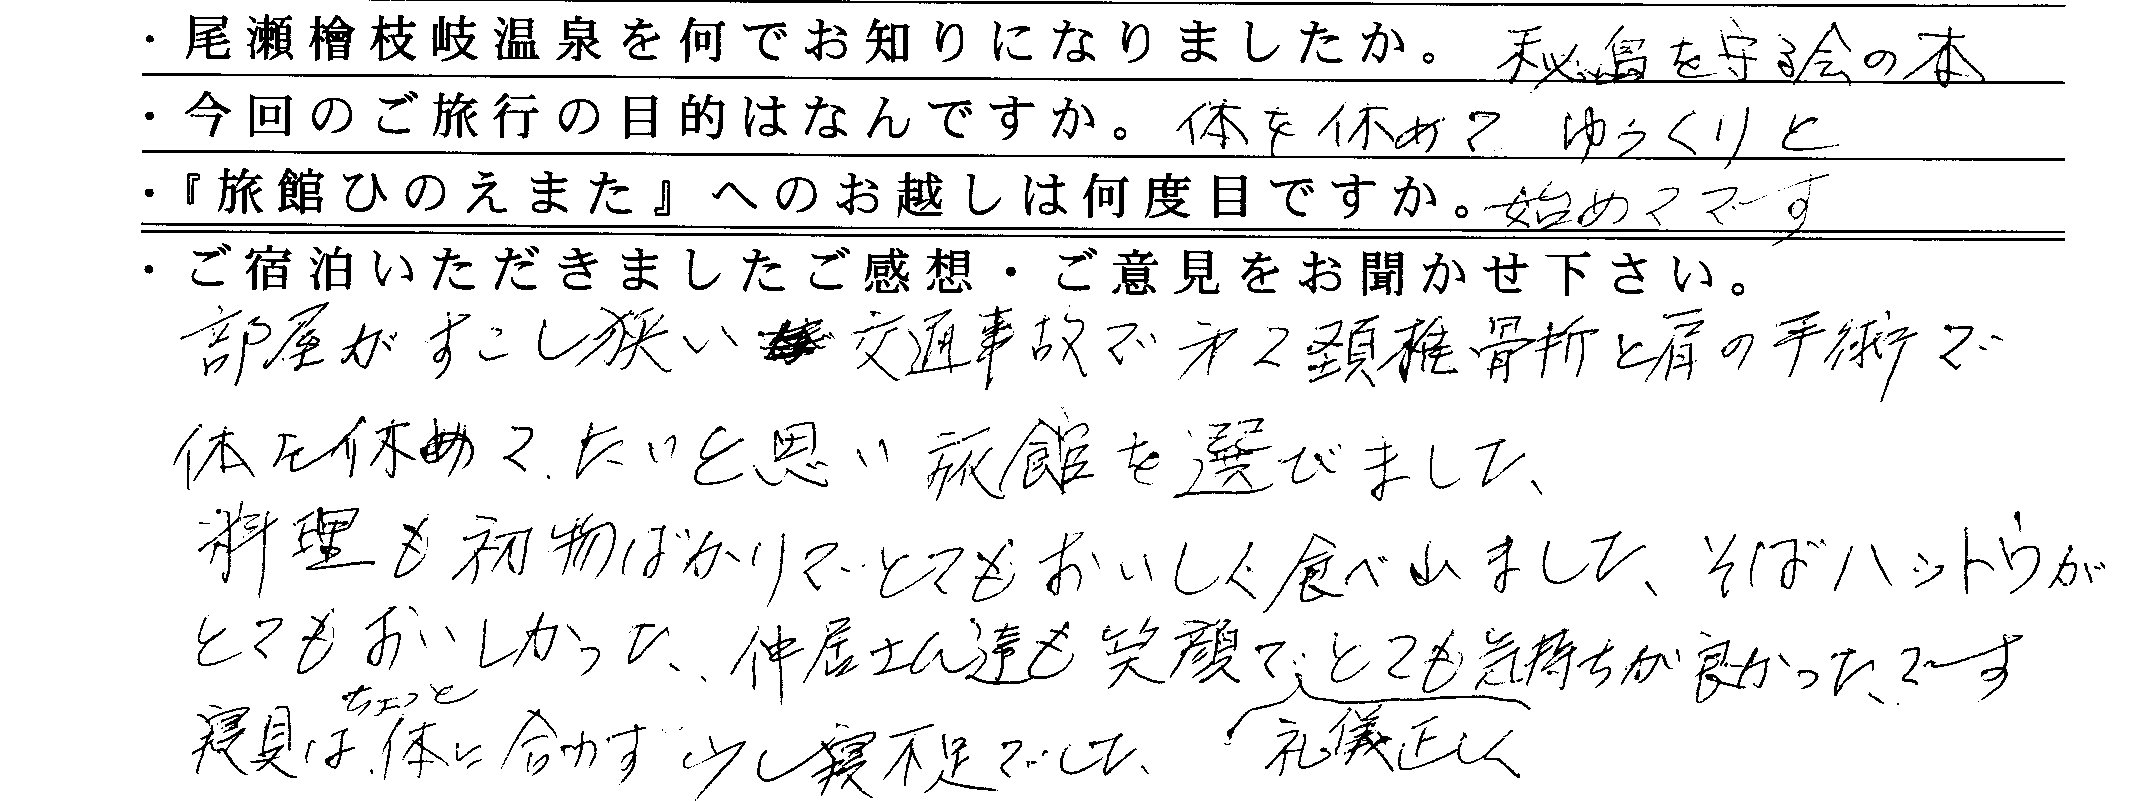 ・尾瀬檜枝岐温泉を何でお知りになりましたか。 秘湯を守る会の本
・今回のご旅行の目的はなんですか。体を休めて ゆっくりと
・『旅館ひのえまた』へのお越しは何度目ですか。始めてです
・ご宿泊いただきましたご感想・ご意見をお聞かせ下さい。
部屋がすこし狭い 交通事故で第2頚椎骨折と肩の手術で
体を休めて、たいと思い旅館を選びました、
料理も初物ばかりでとてもおいしく食べれました、そばハットウが
とてもおいしかった、仲居さん達も笑顔でとても気持ちが良かった、です
ちょっと
寝具は、体に合わず少し寝不足でした、 礼儀正しく